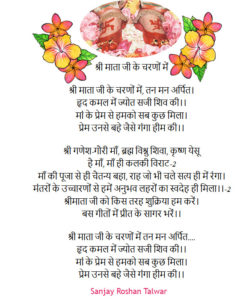 श्री माता जी के चरणों में
श्री माता जी के चरणों में, तन मन अर्पित।
हृद कमल में ज्योत सजी शिव की।।
माँ के प्रेम से हमको सब कुछ मिला।
प्रेम उनसे बहे जैसे गंगा हीम की।।
श्री गणेश-गोरी माँ, ब्रह्म विश्नु शिवा, कृष्ण येसू
हे माँ, माँ ही कलकी विराट-2
माँ की पूजा से ही चैतन्य बहा, राह जो भी चले सत्य ही में रंगा।
मंतरों के उच्चारणों से हमें अनुभव लहरों का स्वदेह ही मिला।।-2
श्रीमाता जी को किस तरह शुक्रिया हम करें।
बस गीतों में प्रीत के सागर भरें।।
श्री माता जी के चरणों में तन मन अर्पित....
हृद कमल में ज्योत सजी शिव की।।
माँ के प्रेम से हमको सब कुछ मिला।
प्रेम उनसे बहे जैसे गंगा हीम की।।
Sanjay Roshan Talwar